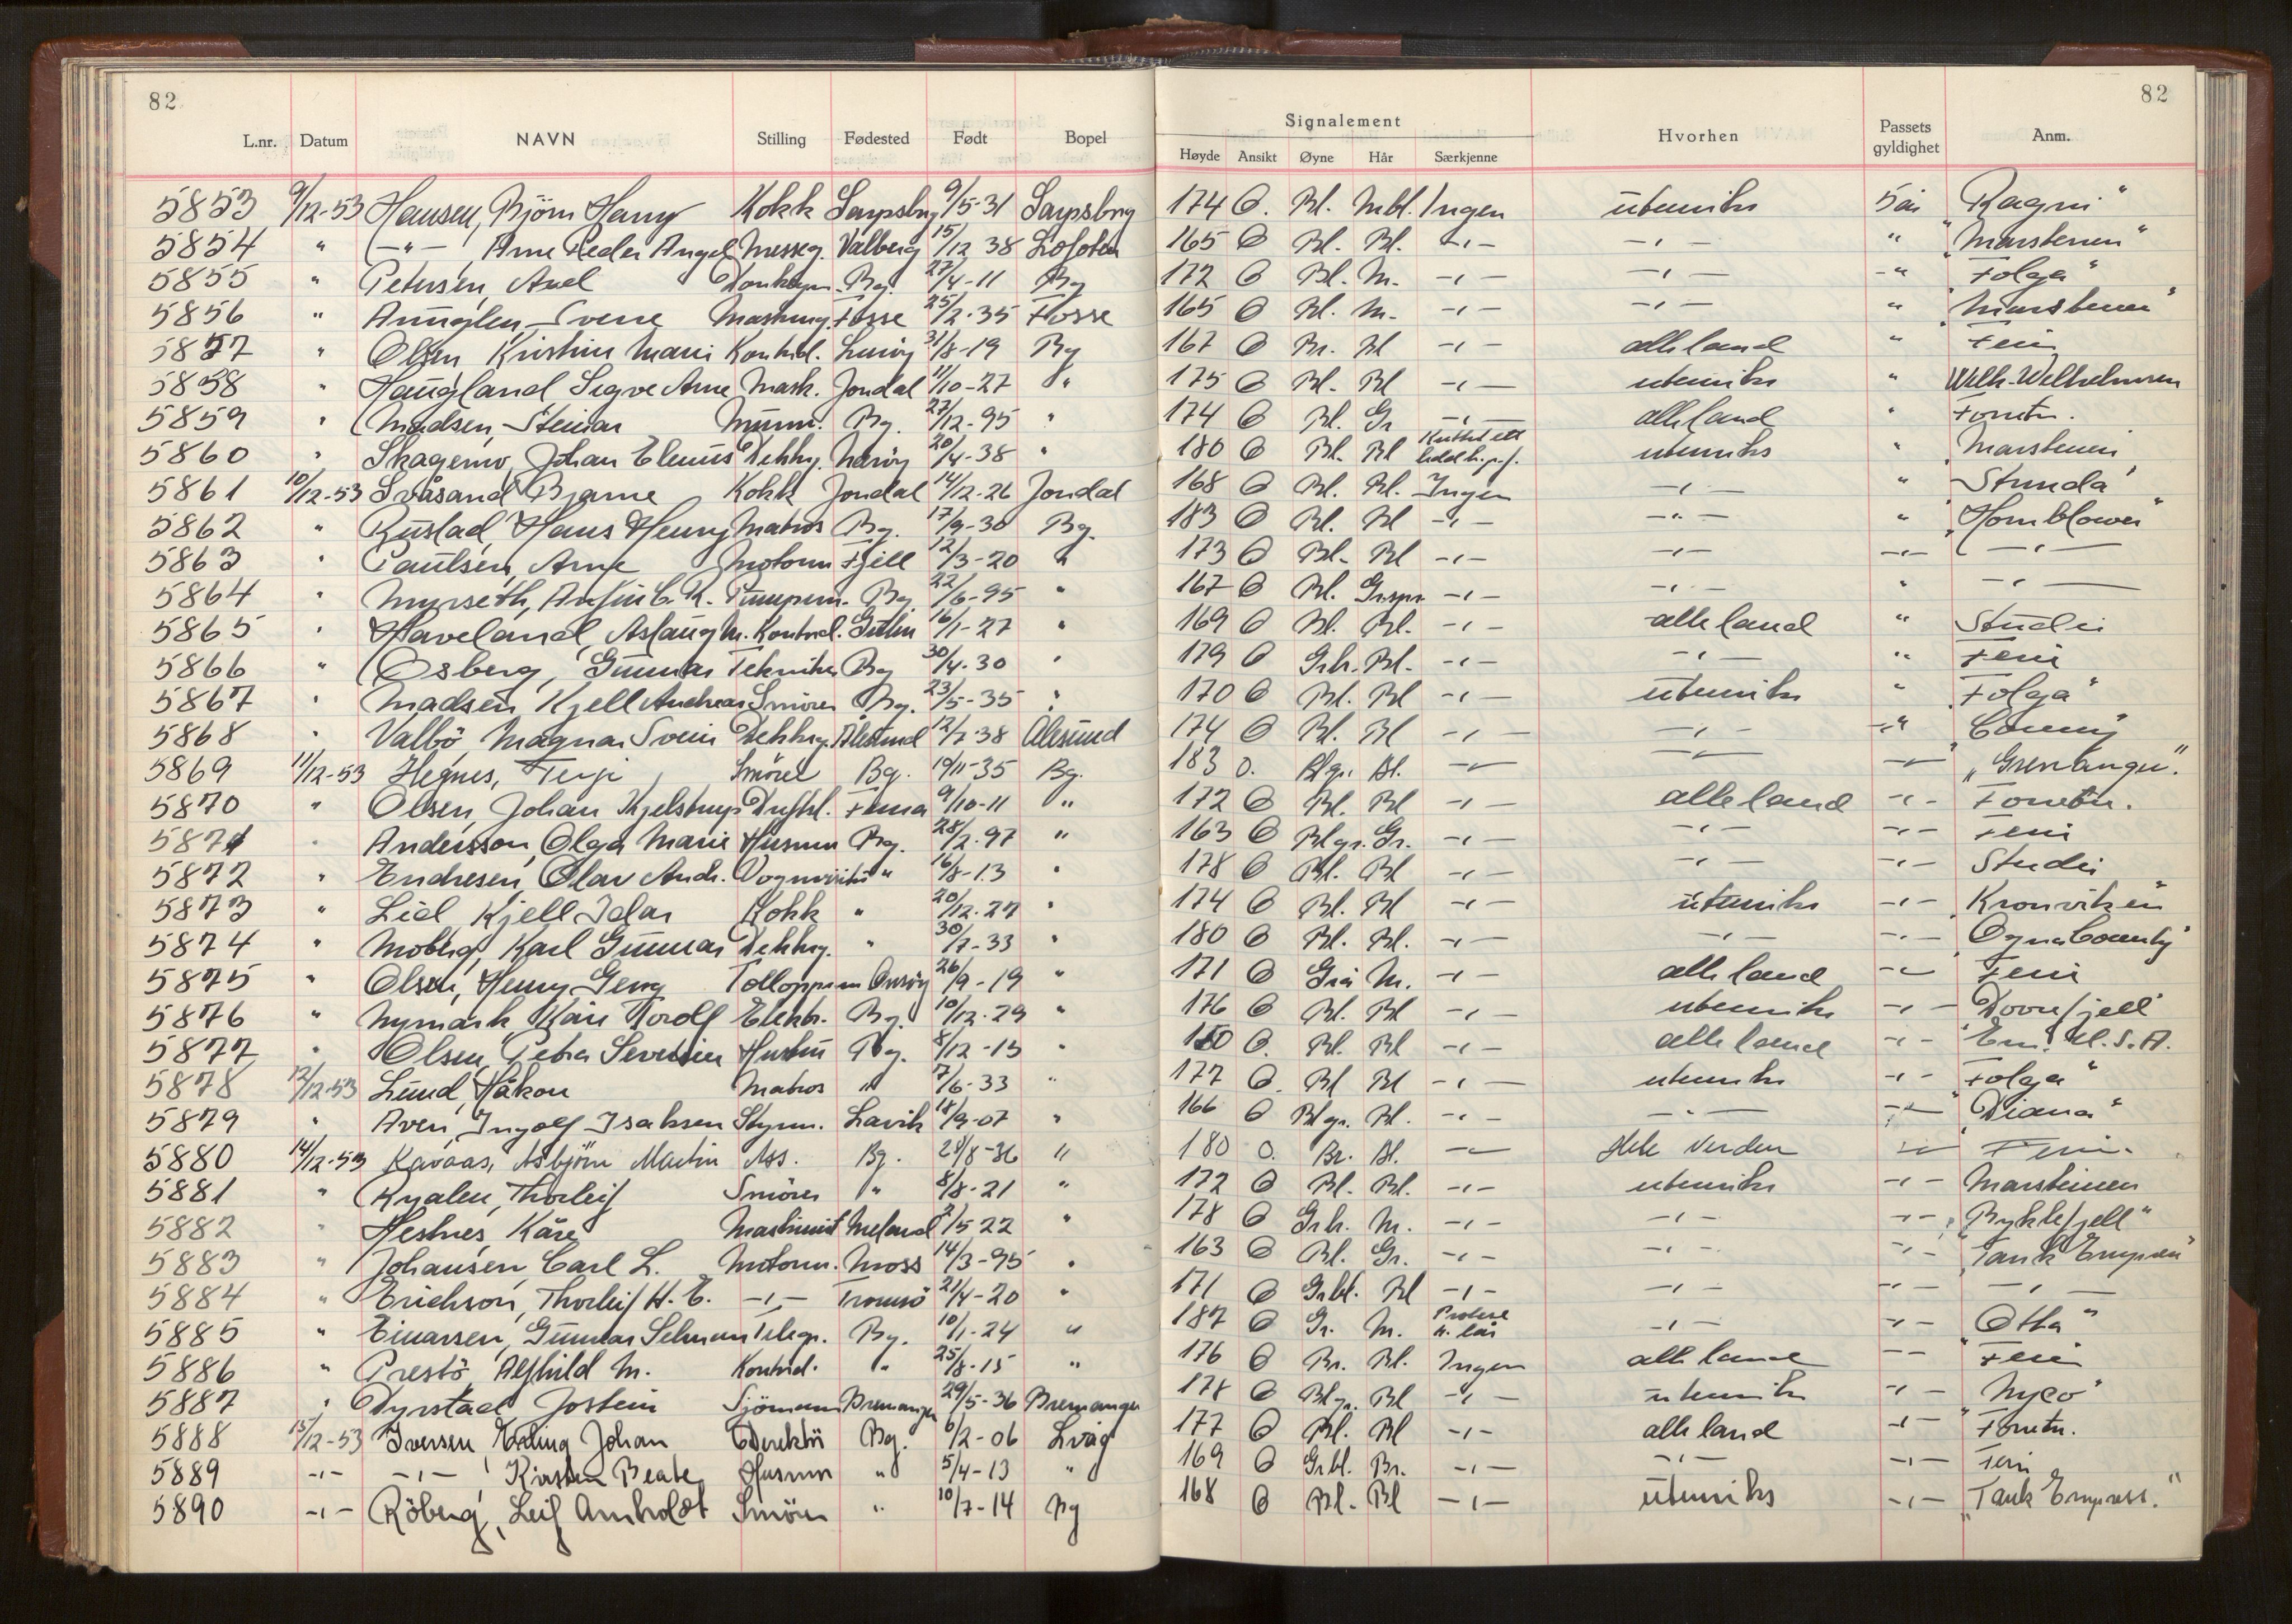 82
82
Signalement
L.nr. Datum NAVN Stilling Fødested Født Bopel Høyde Ansikt Øyne Hår Særkjenne Hvorhen Passets gyldighet Anm.
5853 9/12-53 Hansen, Bjørn Harry Kokk Sarpsbrg 9/5-31 Sarpsbrg 174 O. Bl. Mbl. Ingen utenriks 5 år "Ragni"
5854 " —"— , Arne Peder Angel Messeg. Valberg 15/12 38 Lofoten 165 O Bl. Bl. -"- —"— " "Marstenen"
5855 " Petersen, Axel Donkeym. Bg. 27/4-11 Bg 172 O Bl. M. -"- —"— -" "Folga"
5856 " Sverre Fosse 25/2-35 Fosse 165 O Bl. M. -"- —"— " "Marstenen"
5857 " Olsen, Kristine Marie Kontord. 31/8-19 Bg 167 O Br. Bl -"- alle land " Feri
5858 " Haugland, Sigve Arne Mask. Jondal 11/10-27 " 175 O Bl. Bl -"- utenriks " Wilh. Wilhelmsen
5859 " Madsen, Steinar Bg. 27/12-95 " 174 O Bl. Gr -"- alle land " Forretn.
5860 " Skagemo, Johan Elenius Dekksg. Nærøy 20/4-38 " 180 O Bl. Bl utenriks " Marstenen
5861 10/12-53 Svåsand, Bjarne Kokk Jondal 14/12-26 Jondal 168 O Bl. Bl. Ingen -"- " Stunda"
5862 " Rustad, Hans Henry Matros Bg. 17/9-30 Bg. 183 O Bl. Bl -"- -"- " "Hornblower"
5863 " Paulsen, Arne Motorm Fjell 12/3-20 " 173 O Bl. Bl -"- -"- -"- —"—
5864 " Myrseth, Pumpem. Bg. 22/6-95 " 167 O Bl. Grspr -"- -"- " —"—
5865 " Haveland, Aslaug M. Kontord. Gulen 16/1-27 " 169 O Bl. Bl. -"- alle land " Studie
5866 " Osberg, Gunnar Tekniker Bg 30/4-30 " 179 O Grbr. Bl. -"- -"- " Ferie
5867 " Madsen, Kjell Andreas Smører Bg. 23/5-35 " 170 O Bl. Bl -"- utenriks " "Folga"
5868 " Valbö, Magnar Svein Dekksg. Ålesund 12/7-38 Ålesund 174 O Bl. Bl -"- -"- -"- Conny"
5869 11/12-53 Hegnes, Terje Smörer Bg. 19/11-35 Bg. 183 O. Blgr. Bl. -"- -"- -"- "Grenanger".
5870 " Olsen, Johan Kjelstrup Fana 9/10-11 " 172 O Bl. Bl -"- alle land -"- Forretn.
5871 " Andersson, Olga Marie Husmor Bg. 28/2-97 " 163 O Blgr. Gr. -"- -"- -"- Feri
5872 " Endresen, Olav Andr. " 16/8-13 " 178 O Bl. Bl -"- -"- -"- Studie
5873 " Lid, Kjell Idar Kokk " 20/12-27 " 174 O Bl. Bl -"- utenriks -"- "Kronviken"
5874 " Moberg, Karl Gunnar Dekksg. " 30/7-33 " 180 O Bl. Bl. -"- -"- -"- "Ogna
5875 " Olsen, Henry Georg Tolloppsm Onsøy 26/9-19 " 171 O Grå M. -"- alle land -"- Ferie
5876 " Nymark, Kåre Torolf Elektr. Bg. 10/12-29 " 176 O Bl. Bl -"- utenriks -"- "Dovrefjell"
5877 " Olsen, Petra Severine Hustru Bg. 8/12-13 " 150 O. Bl. Bl -"- alle land -"- Em. U.S.A.
5878 12/12-53 Lund, Håkon Matros " 7/6-33 " 177 O. Bl Bl -"- utenriks -"- "Folga"
5879 " Aven, Ingolf Isaksen Styrm. Lavik 18/9-07 " 166 O Blgr. Bl. -"- -"- -"- "Diana"
5880 14/12-53 Kavaas, Asbjörn Martin Ass. Bg. 28/8-36 " 180 O. Br. Bl. -"- Hele Verden -"- Ferie.
5881 " Ryalen, Thorleif Smörer " 8/8-21 " 172 O Bl. Bl. -"- utenriks -"- Marstenen
5882 " Hestnes, Kåre Maskinist Meland 2/5 22 " 178 O Grbr. M. -"- -"- -"- "Byklefjell"
5883 " Johansen, Carl L. Motorm. Moss 14/3-95 " 163 O Bl. Gr. -"- -"- -"- "Tank Empress"
5884 " Erichson, Thorleif H. E. -"- Tromsö 21/4-20 " 171 O Grbl. Bl -"- -"- -"- —"—
5885 " Einarsen, Gunnar Selman Telegr. Bg. 10/1-24 " 187 O Gr. M. Protese v. lår -"- -"- "Otta"
5886 " Prestö, Alfhild M. Kontord. " 25/8-15 " 176 O Br. Bl. Ingen alle land -"- Ferie
5887 " Dyrstad, Jostein Sjömann Bremanger 29/5-36 Bremanger 178 O Blgr. Bl -"- utenriks -"- "Nyco"
5888 15/12-53 Iversen, Erling Johan Direktör Bg. 6/2-06 Lvåg 177 O Bl. Bl -"- alle land -"- Forretn.
5889 -"- -"- , Kirsten Beate Husmor " 5/4-13 " 169 O Grbl. Br. -"- -"- -"- Feri
5890 -"- Röberg, Leif Arnholdt Smörer " 10/7-14 Bg 168 O Bl. Bl -"- utenriks -"- "Tank Empress."